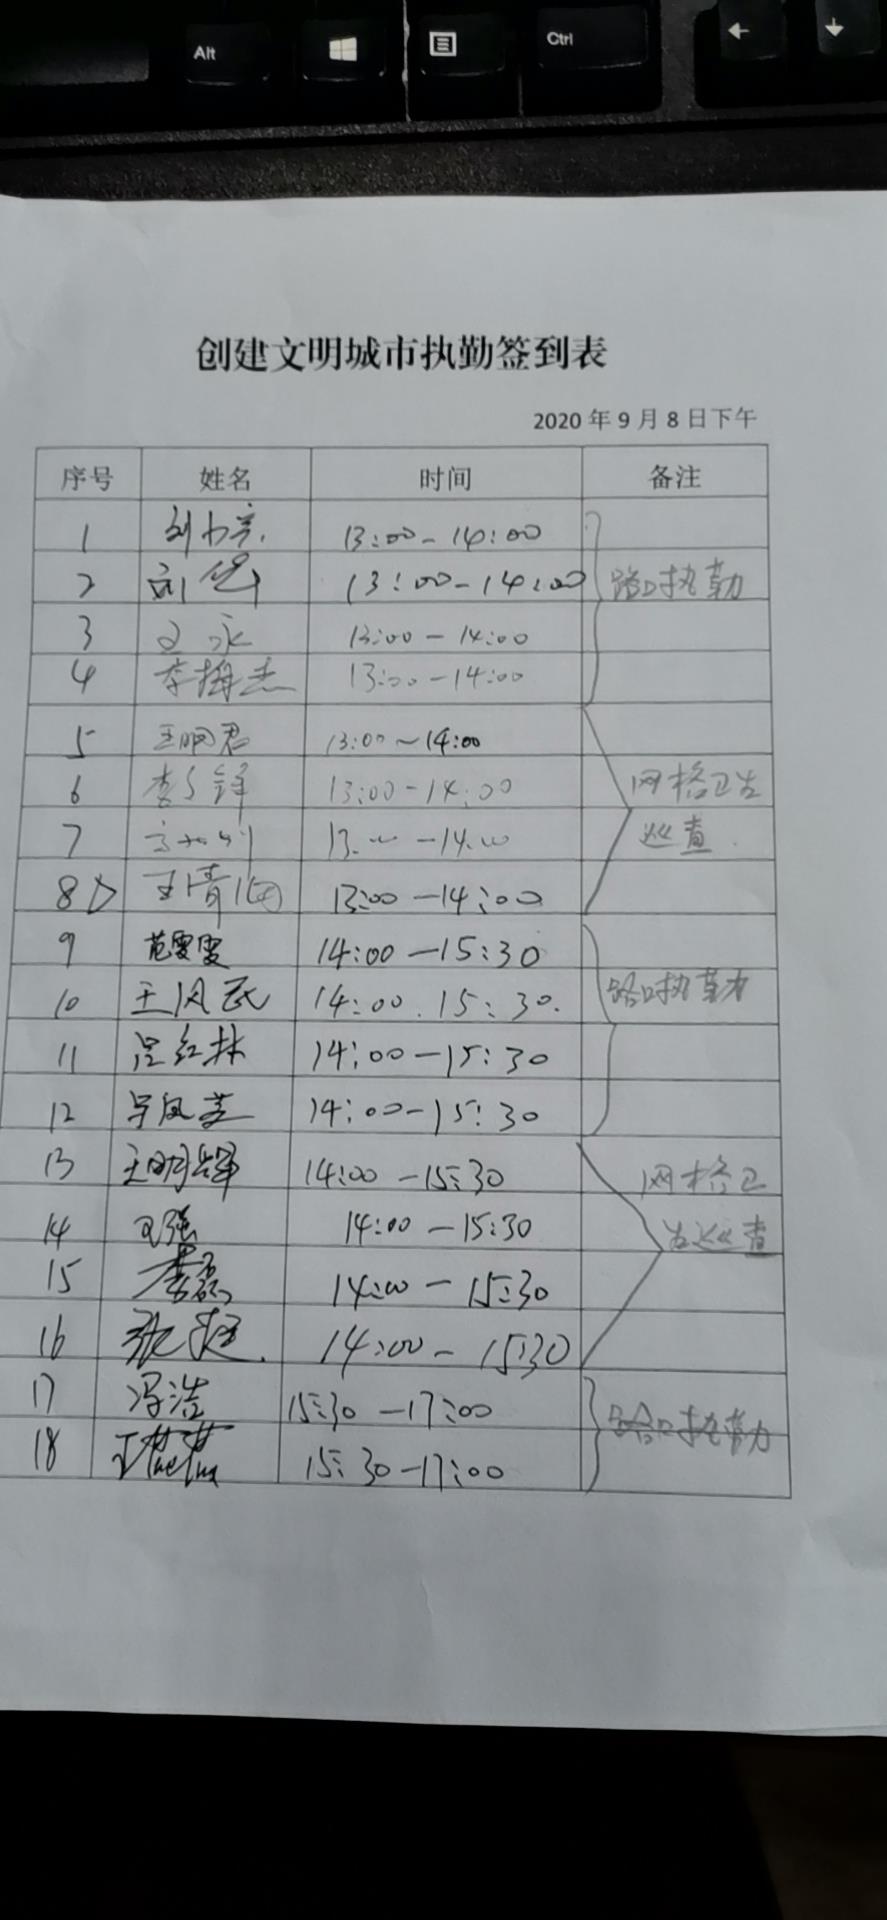 Alt
Ctrl
创建文明城市执勤签到表
2020年9月8日下午
序号 姓名 时间 备注
1 13:00-14:00
2 刘 13:00-14:00 路口执勤
3 王永 13:00-14:00
4 李梅杰 13:00-14:00
5 王明君 13:00~14:00
6 李 锋 13:00-14:00 网格卫生
7 13:00-14:00 巡查.
8 王清 13:00-14:00
9 范雯雯 14:00-15:30
10 王凤民 14:00.15:30. 路口执勤
11 吕红林 14:00-15:30
12 凤芝 14:00-15:30
13 王明辉 14:00-15:30 网格卫
14 王强 14:00-15:30 生巡查
15 李磊 14:00-15:30
16 张 14:00-15:30
17 冯浩 15:30-17:00 路口执勤
18 王 15:30-17:00